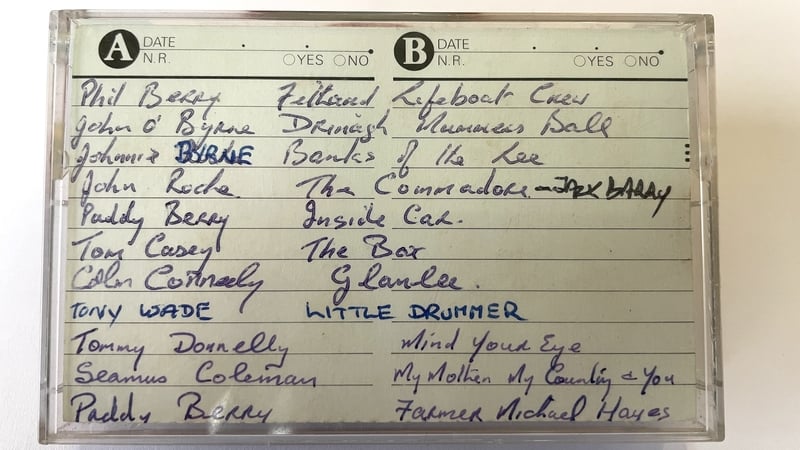 A DATE . .
N.R. ○YES ○NO
B DATE . .
N.R. ○YES ○NO
Phil Berry Fethard Lifeboat Crew
John O' Byrne Drinagh Mummers Ball
Johnnie BYRNE Banks of the Lee
John Roche. The Commodore - JACK BARRY
Paddy Berry Inside Car.
Tom Casey The Box
Colm Conneely Glanlee.
TONY WADE LITTLE DRUMMER
Tommy Donnelly Mind Your Eye
Seamus Coleman My Mother My Country & You
Paddy Berry Farmer Michael Hayes